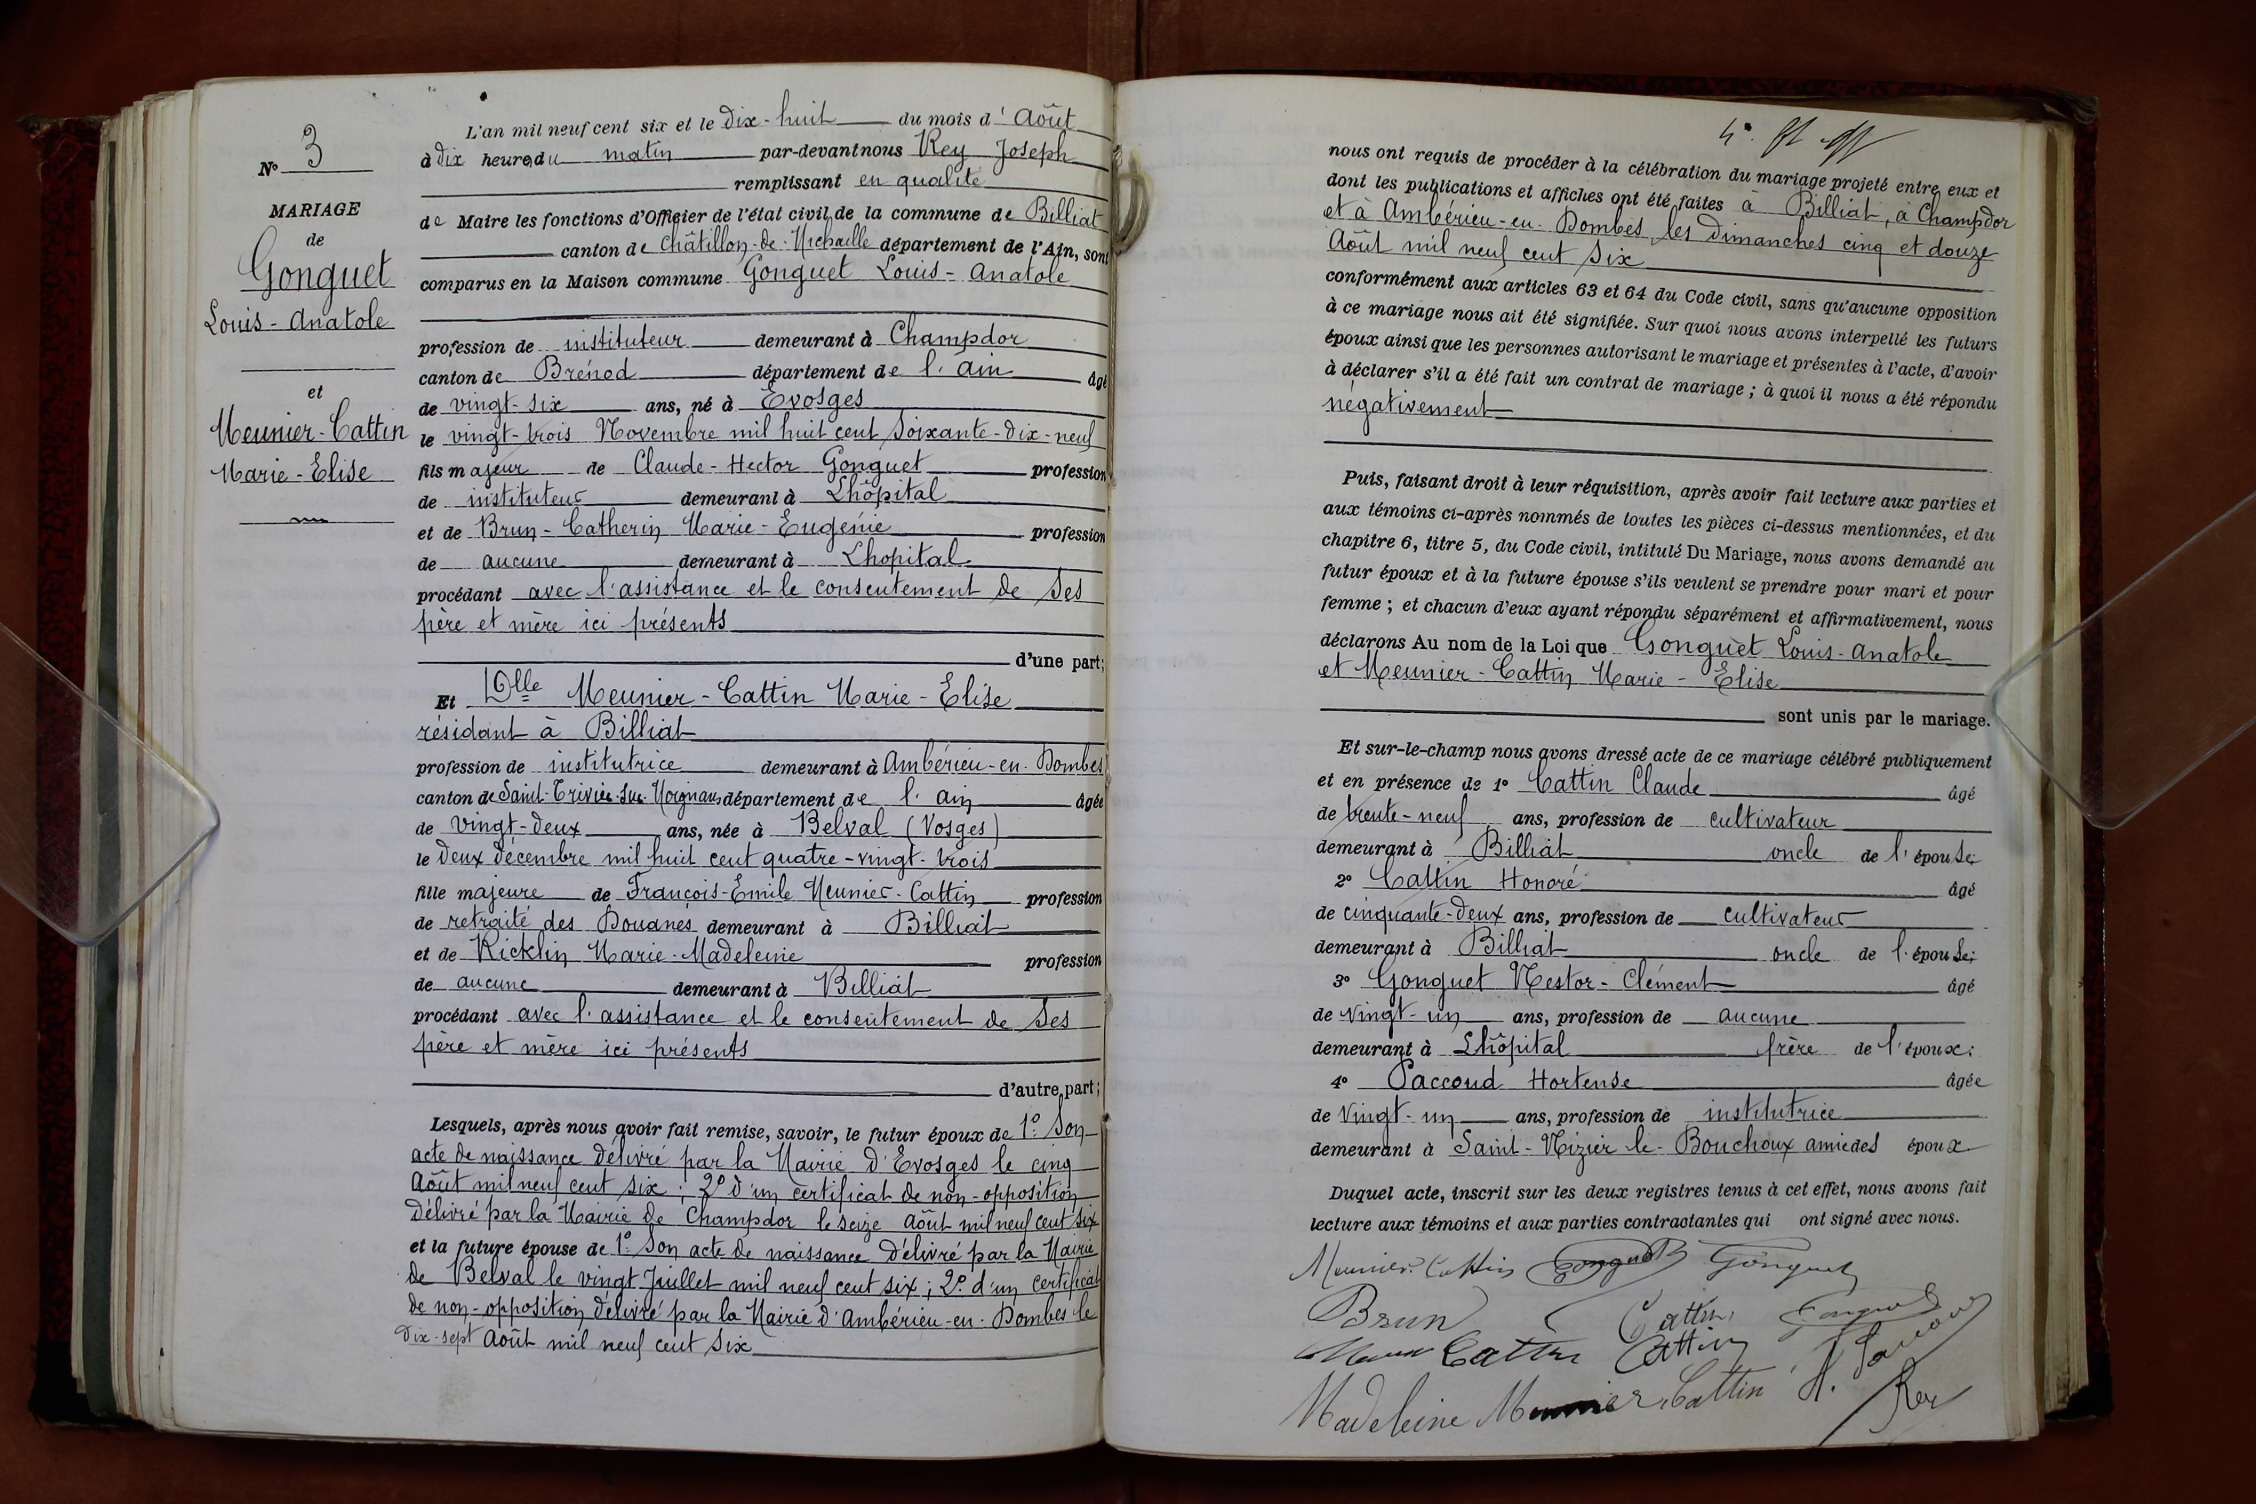 N° 3
MARIAGE
de
Gonguet
Louis-Anatole
et
Meunier-Cattin
Marie-Elise
L'an mil neuf cent six et le dix-huit du mois d'Août
à dix heures du matin par-devant nous Rey Joseph
remplissant en qualité
de Maire les fonctions d'Officier de l'état civil de la commune de Billiat
canton de Châtillon-de-Michaille département de l'Ain, sont
comparus en la Maison commune Gonguet Louis-Anatole
profession de instituteur demeurant à Champdor
canton de Brénod département de l'Ain âgé
de vingt-six ans, né à Evosges
le vingt-trois Novembre mil huit cent soixante-dix-neuf
fils majeur de Claude-Hector Gonguet profession
de instituteur demeurant à Lhôpital
et de Brun-Catherin Marie-Eugénie profession
de aucune demeurant à Lhopital
procédant avec l'assistance et le consentement de ses
père et mère ici présents
d'une part;
Et Dlle Meunier-Cattin Marie-Elise
résidant à Billiat
profession de institutrice demeurant à Ambérieu-en-Dombes
canton de Saint-Trivier-sur-Moignans département de l'Ain âgée
de vingt-deux ans, née à Belval (Vosges)
le deux décembre mil huit cent quatre-vingt-trois
fille majeure de François-Emile Meunier-Cattin profession
de retraité des Douanes demeurant à Billiat
et de Ricklin Marie-Madeleine profession
de aucune demeurant à Billiat
procédant avec l'assistance et le consentement de ses
père et mère ici présents
d'autre part;
Lesquels, après nous avoir fait remise, savoir, le futur époux de 1° Son
acte de naissance délivré par la Mairie d'Evosges le cinq
Août mil neuf cent six; 2° d'un certificat de non-opposition
délivré par la Mairie de Champdor le seize Août mil neuf cent six
et la future épouse de 1° Son acte de naissance délivré par la Mairie
de Belval le vingt Juillet mil neuf cent six; 2° d'un certificat
de non-opposition délivré par la Mairie d'Ambérieu-en-Dombes le
dix-sept Août mil neuf cent six
nous ont requis de procéder à la célébration du mariage projeté entre eux et
dont les publications et affiches ont été faites à Billiat, à Champdor
et à Ambérieu-en-Dombes les dimanches cinq et douze
Août mil neuf cent six
conformément aux articles 63 et 64 du Code civil, sans qu'aucune opposition
à ce mariage nous ait été signifiée. Sur quoi nous avons interpellé les futurs
époux ainsi que les personnes autorisant le mariage et présentes à l'acte, d'avoir
à déclarer s'il a été fait un contrat de mariage; à quoi il nous a été répondu
négativement
Puis, faisant droit à leur réquisition, après avoir fait lecture aux parties et
aux témoins ci-après nommés de toutes les pièces ci-dessus mentionnées, et du
chapitre 6, titre 5, du Code civil, intitulé Du Mariage, nous avons demandé au
futur époux et à la future épouse s'ils veulent se prendre pour mari et pour
femme; et chacun d'eux ayant répondu séparément et affirmativement, nous
déclarons Au nom de la Loi que Gonguet Louis-Anatole
et Meunier-Cattin Marie-Elise
sont unis par le mariage.
Et sur-le-champ nous avons dressé acte de ce mariage célébré publiquement
et en présence de 1° Cattin Claude âgé
de trente-neuf ans, profession de cultivateur
demeurant à Billiat oncle de l'épouse;
2° Cattin Honoré âgé
de cinquante-deux ans, profession de cultivateur
demeurant à Billiat oncle de l'épouse;
3° Gonguet Nestor-Clément âgé
de vingt-un ans, profession de aucune
demeurant à Lhôpital frère de l'époux;
4° Paccoud Hortense âgée
de vingt-un ans, profession de institutrice
demeurant à Saint-Nizier-le-Bouchoux amie des époux
Duquel acte, inscrit sur les deux registres tenus à cet effet, nous avons fait
lecture aux témoins et aux parties contractantes qui ont signé avec nous.
Meunier-Cattin Gonguet Gonguet
Brun Cattin Gonguet
Cattin Cattin
Madeleine Meunier Cattin
Rey